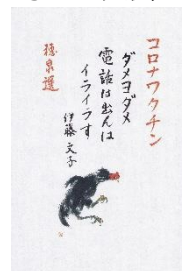 コロナワクチン
ダメヨダメ
電話は出んは
イライラす
伊藤文子
穂泉選